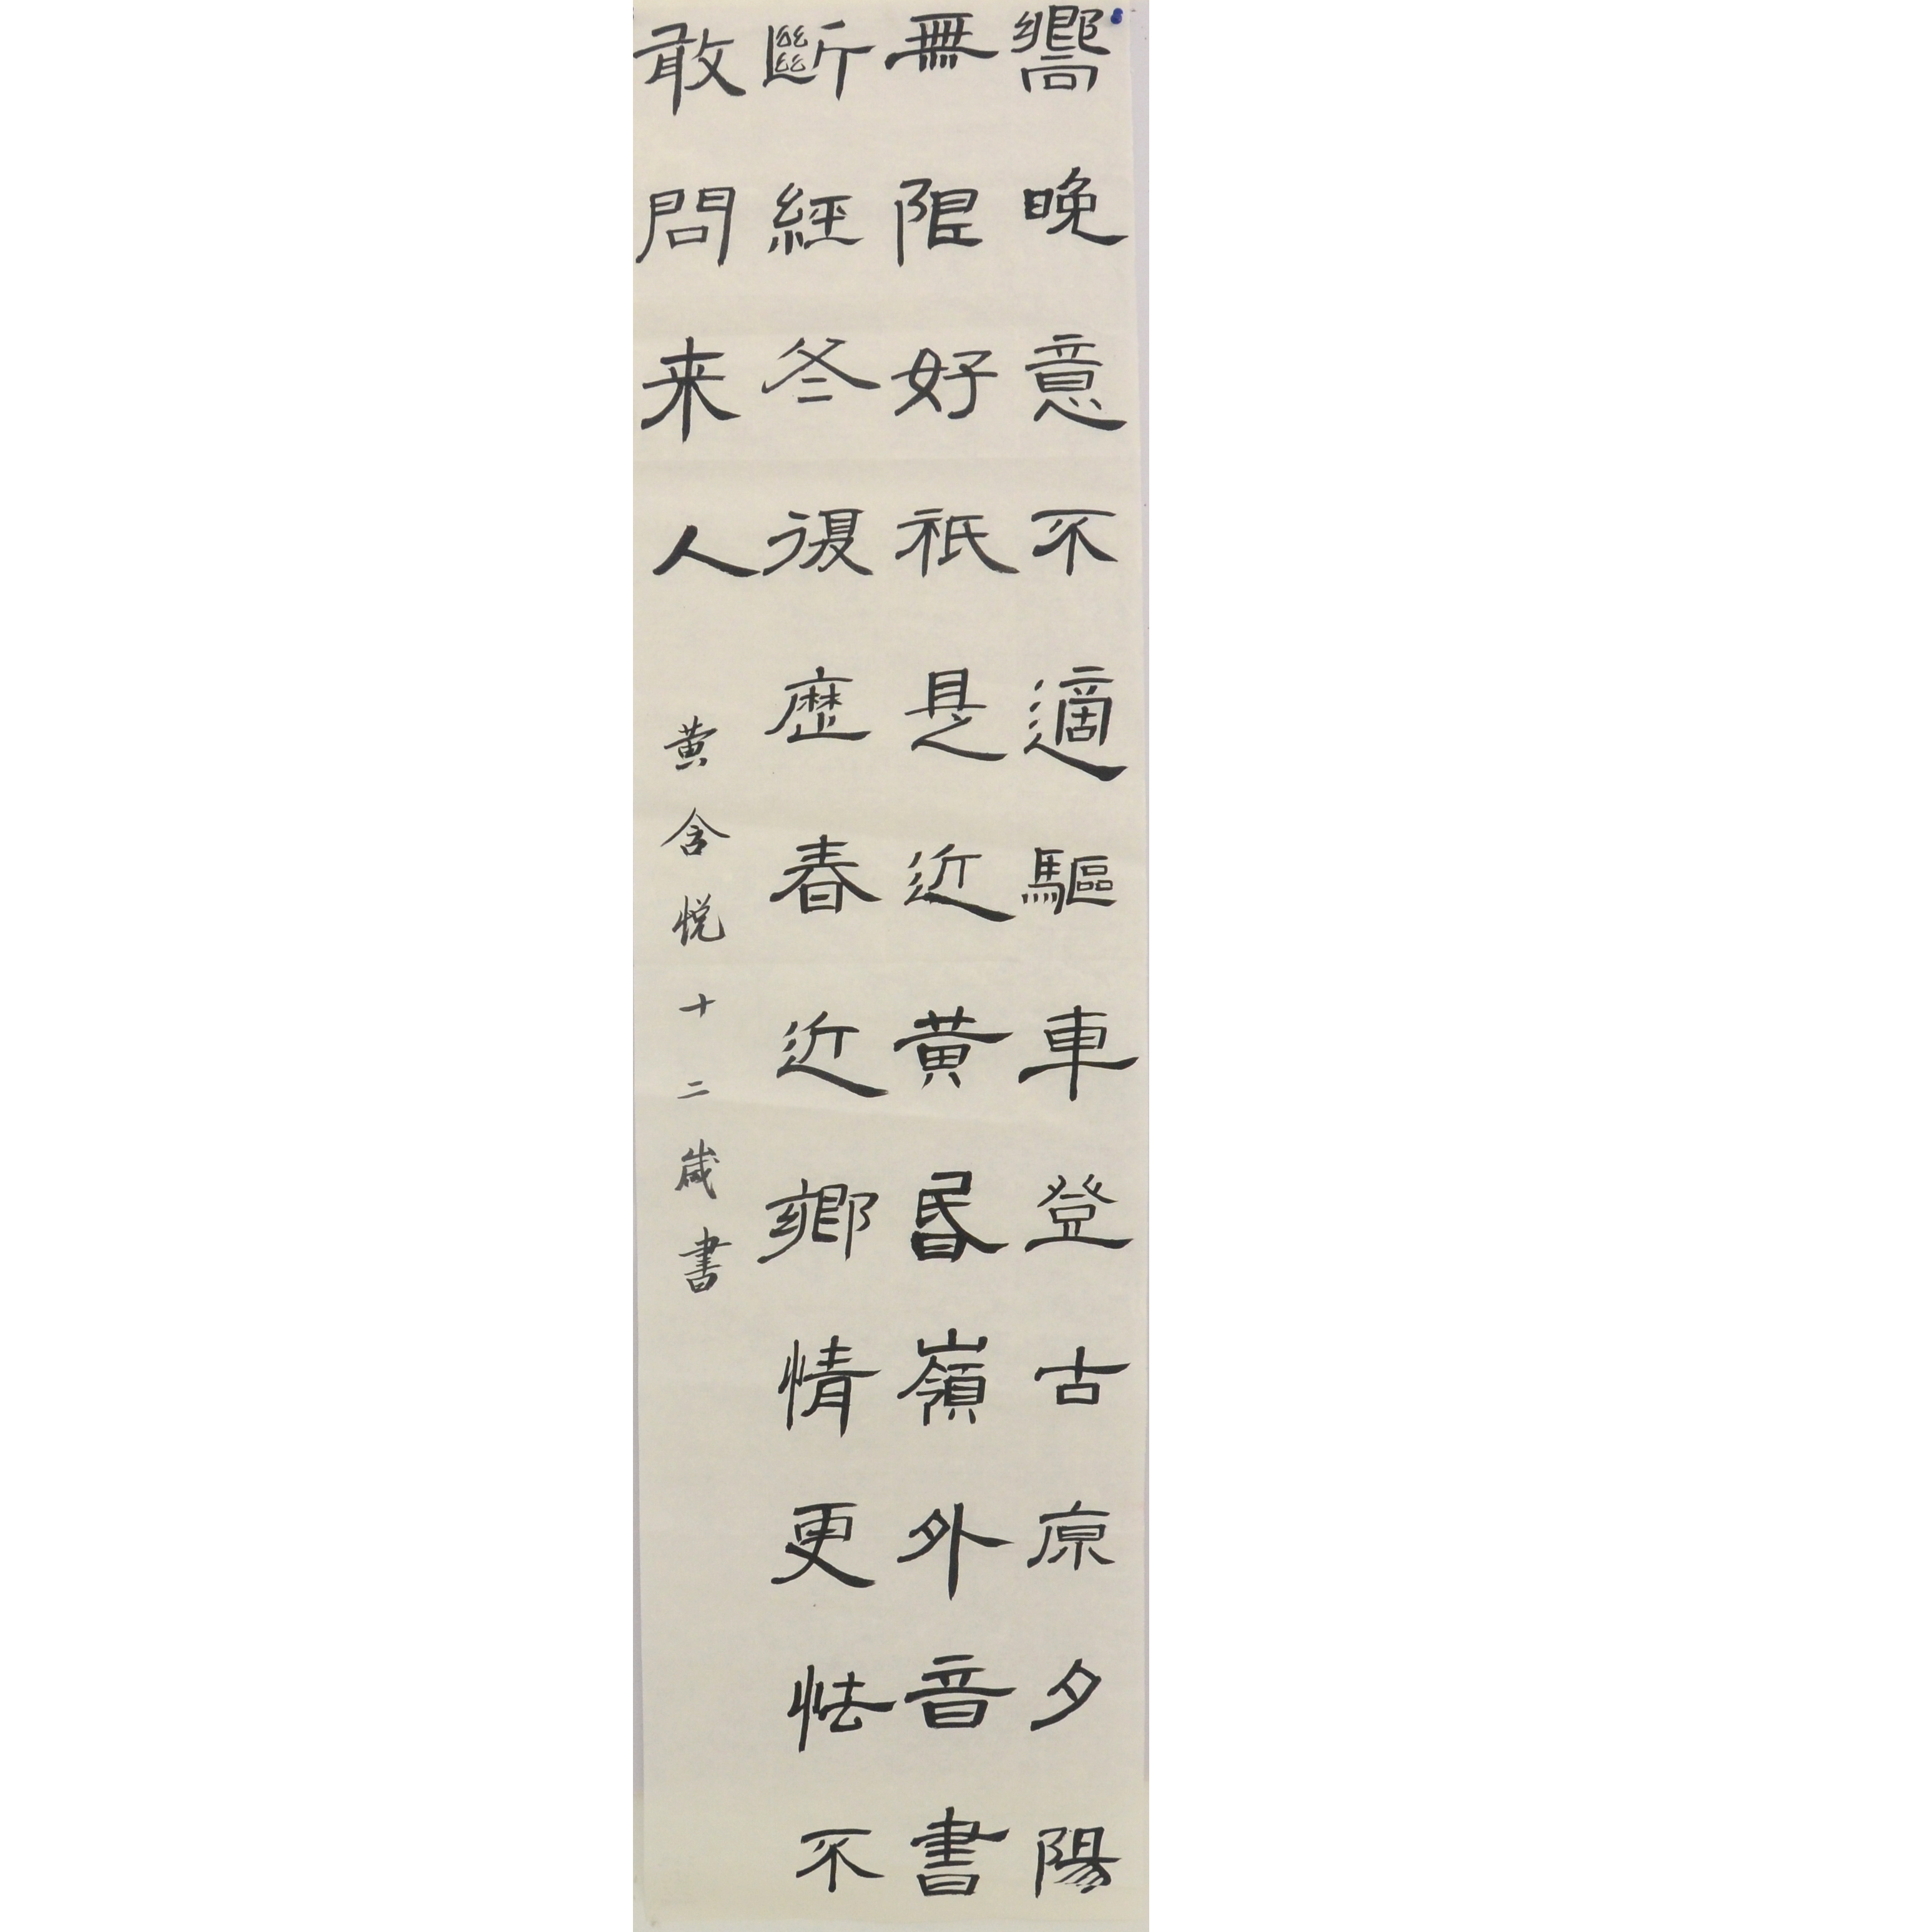 嚮晚意不適驅車登古原夕陽
無限好祇是近黄昬嶺外音書
斷經冬復歷春近鄉情更怯不
敢問来人
黄含悦十二歲書